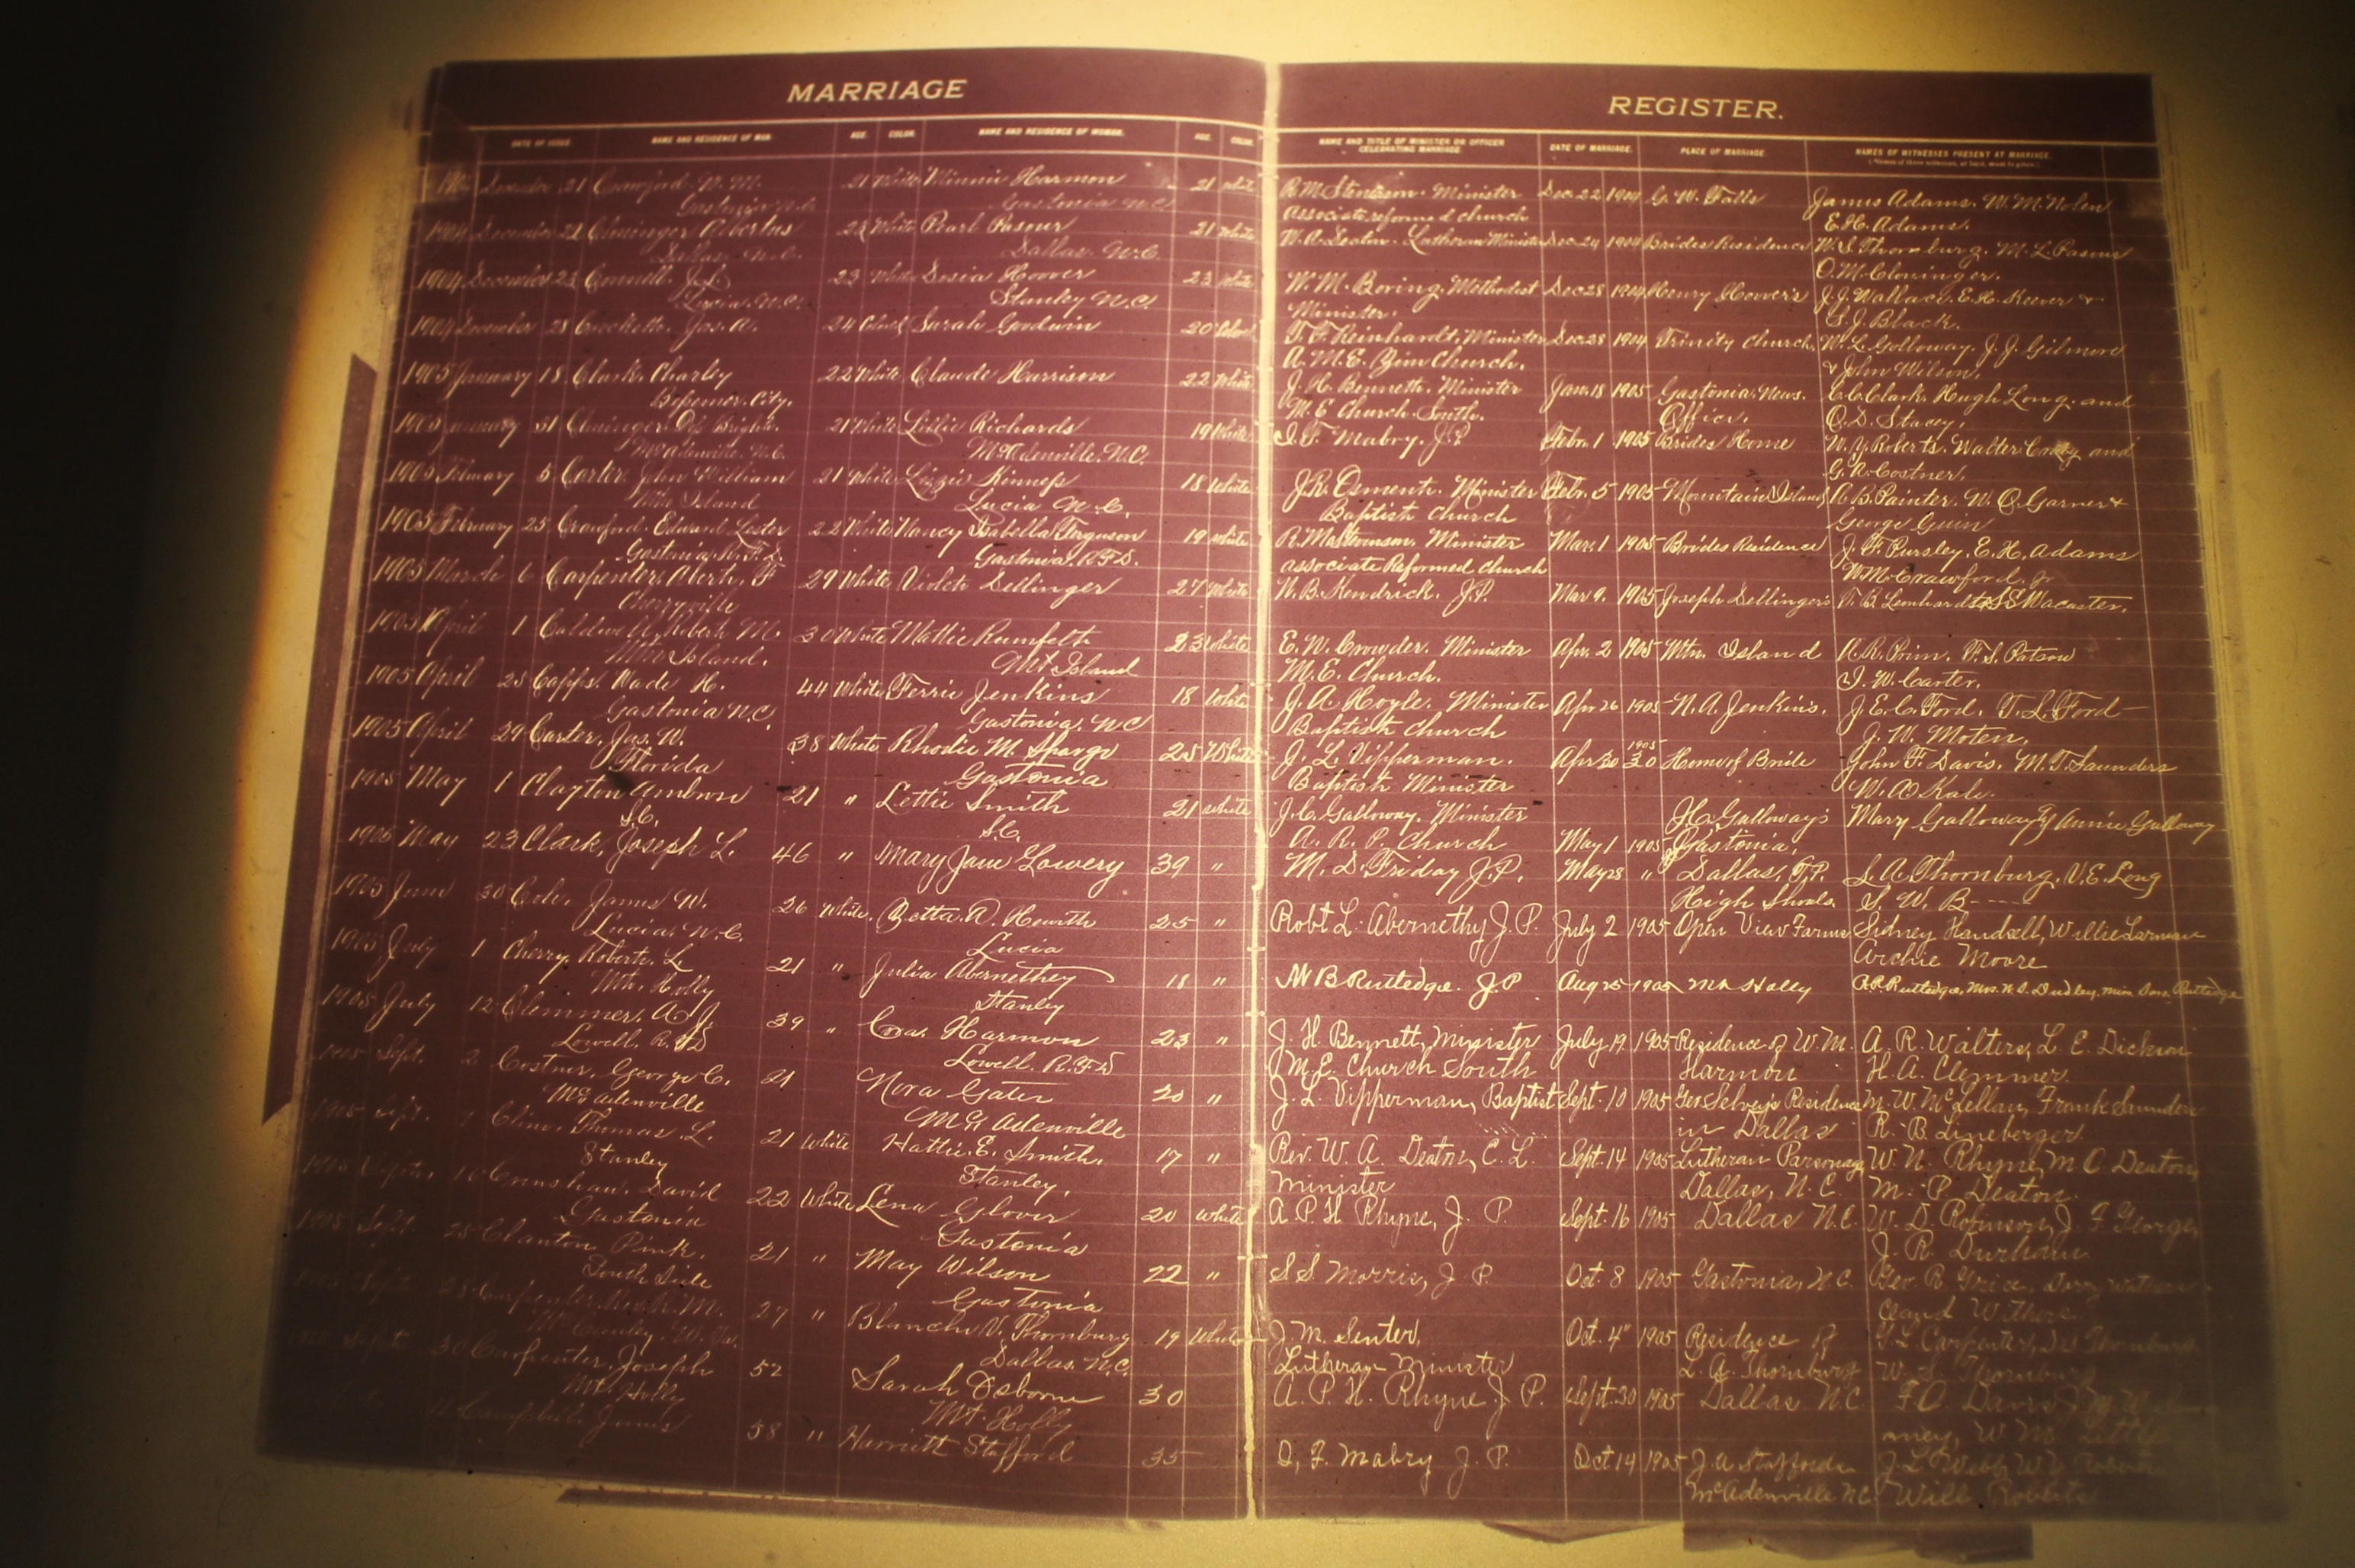 MARRIAGE REGISTER.
DATE OF ISSUE. NAME AND RESIDENCE OF MAN. AGE. COLOR. NAME AND RESIDENCE OF WOMAN. AGE. COLOR. NAME AND TITLE OF MINISTER OR OFFICER CELEBRATING MARRIAGE. DATE OF MARRIAGE. PLACE OF MARRIAGE. NAMES OF WITNESSES PRESENT AT MARRIAGE.
December 21 Crawford. W. M. 21 White Minnie Harmon 21 White R. M. Stevenson. Minister Dec. 22 1904 G. W. Falls James Adams. W. M. Nolen
Gastonia N.C. Gastonia N.C. Associate reformed church E. H. Adams.
1904 December 22 Cloninger Abertus 23 White Pearl Pasour 21 White W. A. Deaton. Lutheran Minister Dec. 24 1904 Brides Residence W. S. Thornburg. M. L. Pasour
Dallas. N.C. Dallas. N.C. O. M. Cloninger.
1904 December 23 Connell. J. L. 23 White Dosia Hoover 23 White W. M. Boring. Methodist Dec 28 1904 Henry Hoover's J. J. Wallace. E. H. Keever &
Lucia. N.C. Stanley N.C. Minister. S. J. Black.
1904 December 28 Crockette. Jas. A. 24 Sarah Godwin 20 T. F. Reinhardt, Minister Dec 28 1904 Trinity Church. W. L. Galloway. J. J. Gilmore
A. M. E. Zion Church. & John Wilson.
1905 January 18 Clark. Charley 22 White Claude Harrison 22 White J. H. Bennett. Minister Jan. 18 1905 Gastonia News. C. C. Clark. Hugh Long. and
Bessemer. City. M. E Church. South. Office. O. D. Stacey.
1905 January 31 Cloninger 21 White Lillie Richards 19 White I. F. Mabry. J.P. Febr. 1 1905 Brides Home W. Y. Roberts. Walter and
McAdenville. N.C. McAdenville. N.C. G. R. Costner.
1905 February 5 Carter. John William 21 White Lizzie Kinness 18 White J. R. Osment. Minister Febr. 5 1905 Mountain Island A. B. Painter. W. O. Garner &
Mtn Island Lucia N.C. Baptist Church George Guin
1905 February 25 Crawford. Edward Lester 22 White Nancy Isabella Ferguson 19 White R. M. Stevenson. Minister Mar. 1 1905 Brides Residence J. F. Pursley. E. H. Adams
Gastonia. R.F.D. Gastonia. R.F.D. associate Reformed church W. M. Crawford. Jr
1905 March 6 Carpenter. Abert. F 29 White Violet Dellinger 27 White N. B. Kendrick. J.P. Mar 9. 1905 Joseph Dellinger's
Cherryville
1905 April 1 Caldwell, Robert M. 30 White Mattie Rumfelt 23 White E. W. Crowder. Minister Apr. 2 1905 Mtn. Island R. R. Prim. F. S. Patson
Mtn Island. Mt Island M. E. Church. I. W. Carter.
1905 April 25 Capps. Wade H. 44 White Ferrie Jenkins 18 White J. A. Hoyle. Minister Apr 26 1905 N. A. Jenkins. J. E. C. Ford. T. L. Ford
Gastonia N.C. Gastonia. NC Baptist Church J. W. Moten.
1905 April 29 Carter, Jas. W. 38 White Rhodie M. Spargo 25 White J. L. Vipperman. Apr 30 1905 Home of Bride John F. Davis. M. T. Saunders
Florida Gastonia Baptist Minister W. A. Kale.
1905 May 1 Clayton Ambrose 21 " Lettie Smith 21 White J. C. Galloway. Minister J. C. Galloway's Mary Galloway Annie Galloway
S.C. S.C. A. R. P. Church May 1 1905 Gastonia,
1905 May 23 Clark, Joseph L. 46 " Mary Jane Lowery 39 " M. D. Friday J.P. May 28 " Dallas, T.P. L. A. Thornburg. V. E. Long
High Shoals. S. W. B----
1905 June 30 Cole. James W. 26 White. Zetta A. Hewitt 25 " Robt L. Abernethy J.P. July 2 1905 Open View Farms Sidney Handsell, Willie Larmean
Lucia. N.C. Lucia Archie Moore
1905 July 1 Cherry. Robert. L 21 " Julia Abernethey 18 " W B Rutledge. J.P. Aug 25 1905 Mt Holly
Mt. Holly Stanley
1905 July 12 Clemmer. A J. 39 " Cora Harmon 23 " J. H. Bennett, Minister July 19. 1905 Residence of W. M. A. R. Walters, L. E. Dickson
Lowell. R.F.D Lowell. R.F.D M. E. Church South Harmon H. A. Clemmer.
1905 Sept. 2 Costner. George C. 21 Nora Gater 20 " J. L. Vipperman, Baptist Sept. 10 1905 Geo Selvey's Residence M. W. McLellan, Frank Saunders
McAdenville McAdenville in Dallas R. B. Lineberger.
1905 Sept. Cline. Thomas L. 21 White Hattie. E. Smith. 17 " Rev. W. A. Deaton, E. L. Sept. 14 1905 Lutheran Parsonage W. N. Rhyne, M. C. Deaton,
Stanley Stanley. Minister Dallas, N.C. M. P. Deaton.
1905 Sept. Crenshaw. David 22 White Lena Glover 20 White A. P. H Rhyne, J. P. Sept. 16 1905 Dallas N.C. W. D. Robinson, J. F. George,
Gastonia Gastonia J. R. Durham
1905 Sept. 25 Clanton, Pink. 21 " May Wilson 22 " S. S. Morris, J. P. Oct. 8 1905 Gastonia, N.C. Geo. R. Grice,
South Side Gastonia
Sept. 25 Carpenter. 27 " Blanche V. Thornburg 19 White J. M. Senter, Oct. 4" 1905 Residence of
Dallas. N.C. Lutheran Minister L. A. Thornburg W. S. Thornburg
Sept. 30 Carpenter. Joseph 52 Sarah Osborne 30 A. P. H. Rhyne J. P. Sept. 30 1905 Dallas N.C.
Mt. Holly Mt. Holly
Campbell. 58 " Harriett Stafford 35 I, F. Mabry J. P. Oct. 14 1905 J. A Staffords J. L. Webb
McAdenville NC Will Roberts